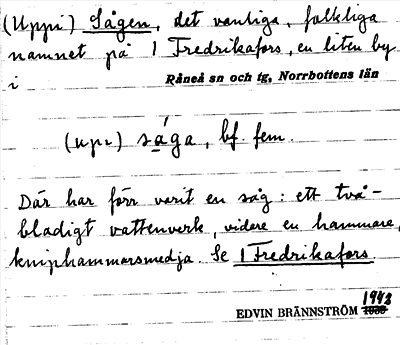 (Uppi) Sågen, det vanliga, folkliga
namnet på 1 Fredrikafors, en liten by
i Råneå sn och tg, Norrbottens län
(upı) såga, bf. fem.
Där har förr varit en såg: ett två-
bladigt vattenverk, vidare en hammare,
kniphammarsmedja. Se 1 Fredrikafors.
1943
EDVIN BRÄNNSTRÖM 1938